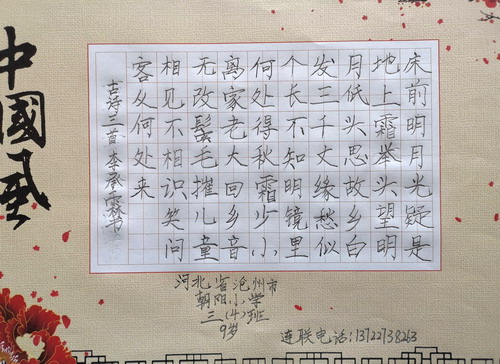 床前明月光疑是
地上霜举头望明
月低头思故乡白
发三千丈缘愁似
个长不知明镜里
何处得秋霜少小
离家老大回乡音
无改鬓毛摧儿童
相见不相识笑问
客从何处来
古诗三首李承霖书
中國風
河北省沧州市
朝阳小学
三(4)班
9岁
连联电话:13722738263